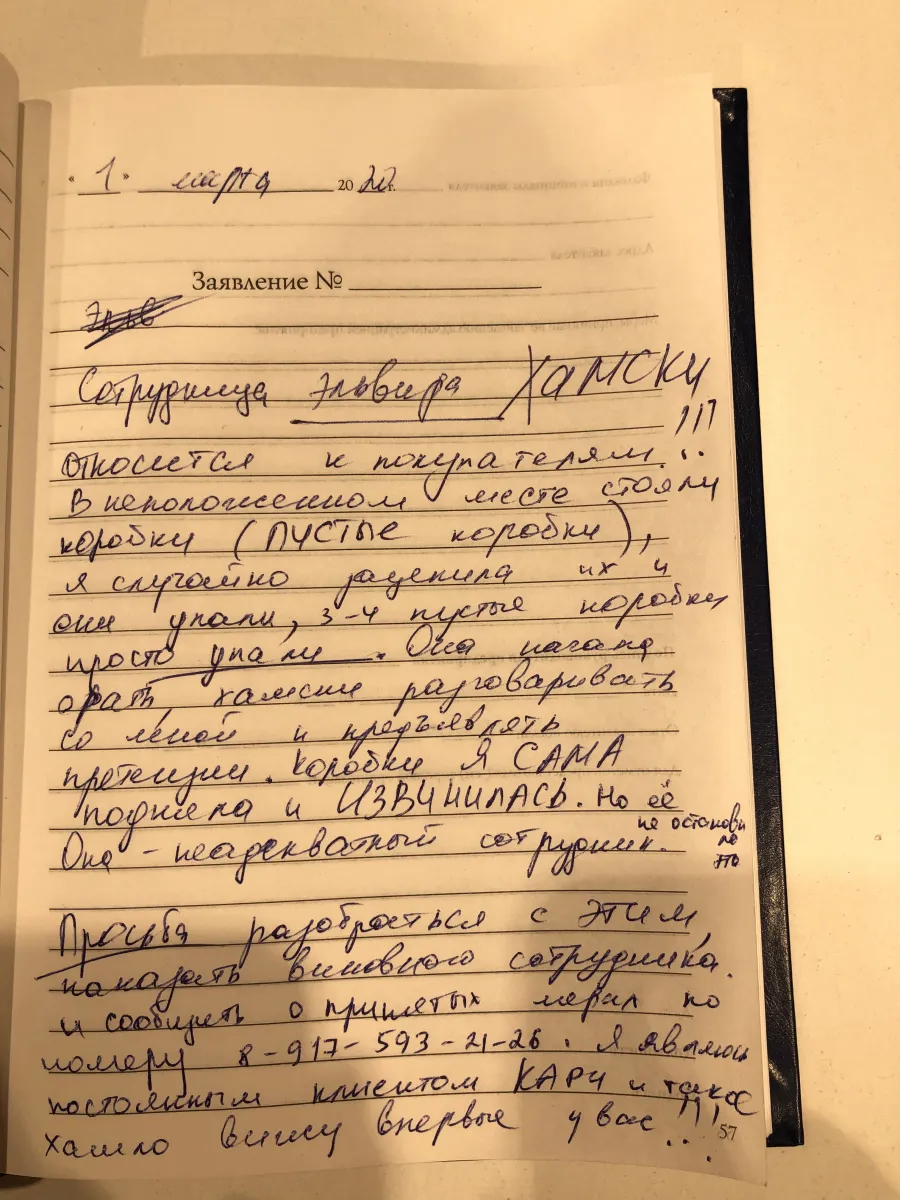 « 1 » марта 2020 г.
Заявление №
Эльв
Сотрудница Эльвира ХАМСКИ
относится к покупателям!!!
В неположенном месте стояли
коробки (ПУСТЫЕ коробки),
я случайно зацепила их и
они упали, 3-4 пустые коробки
просто упали. Она начала
орать, хамски разговаривать
со мной и предъявлять
претензии. Коробки Я САМА
подняла и ИЗВИНИЛАСЬ. Но её
не остановило это
Она - неадекватный сотрудник.
Просьба разобраться с ЭТИМ,
наказать виновного сотрудника.
и сообщить о принятых мерах по
номеру 8-917-593-21-26. Я являюсь
постоянным клиентом КАРИ и такое
хамло вижу впервые у вас!!!
57